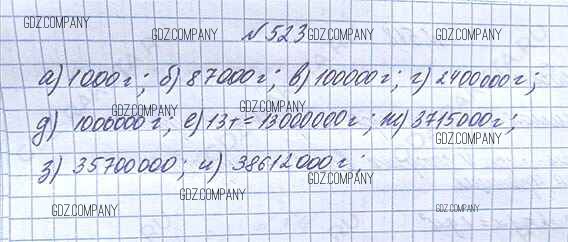 GDZ.COMPANY GDZ.COMPANY № 523 GDZ.COMPANY GDZ.COMPANY
а) 1000г; б) 87000г; в) 100000г; г) 2400000г;
GDZ.COMPANY GDZ.COMPANY
д) 1000000г; е) 13т = 13000000г; ж) 3715000г;
GDZ.COMPANY
з) 35700000; и) 38612000г;
GDZ.COMPANY
GDZ.COMPANY GDZ.COMPANY GDZ.COMPANY